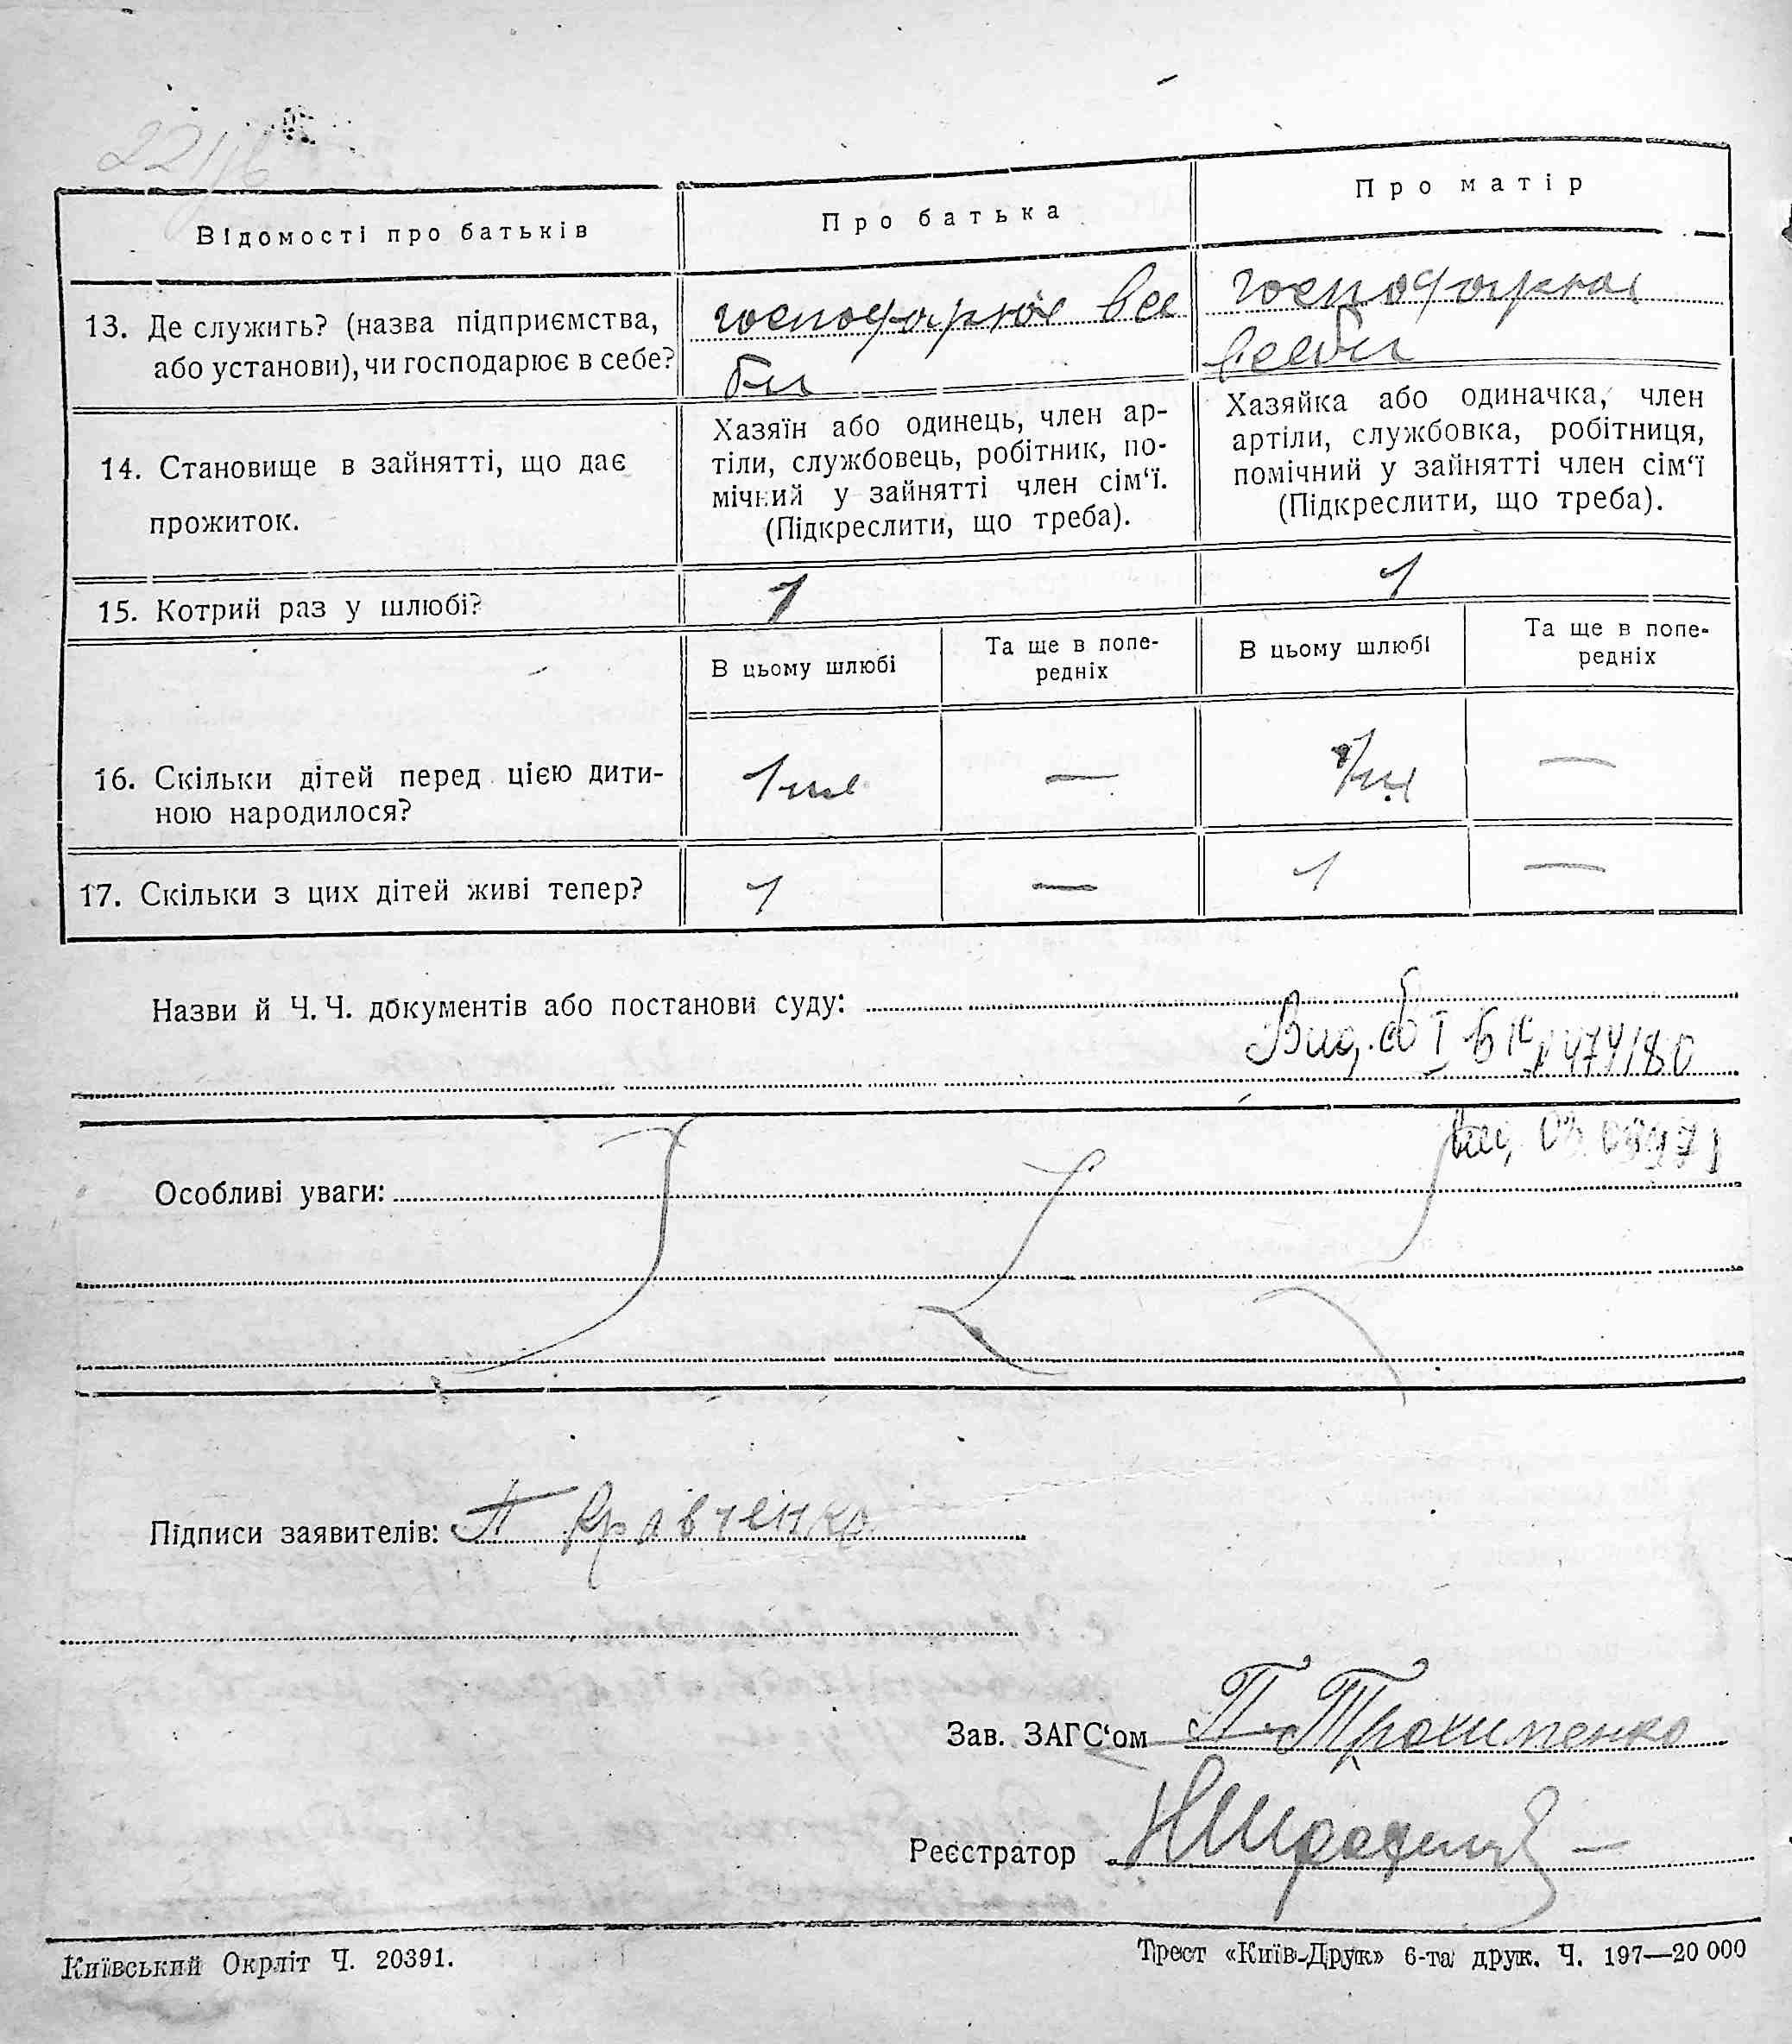 Відомості про батьків
Про батька
Про матір
13. Де служить? (назва підприємства,
або установи), чи господарює в себе?
господарює все
би
господарює
в себи
14. Становище в зайнятті, що дає
прожиток.
Хазяїн або одинець, член ар-
тіли, службовець, робітник, по-
мічний у зайнятті член сім‘ї.
(Підкреслити, що треба).
Хазяйка або одиначка, член
артіли, службовка, робітниця,
помічний у зайнятті член сім‘ї
(Підкреслити, що треба).
15. Котрий раз у шлюбі?
1
1
В цьому шлюбі
Та ще в попе-
редніх
В цьому шлюбі
Та ще в попе-
редніх
16. Скільки дітей перед цією дити-
ною народилося?
—
—
17. Скільки з цих дітей живі тепер?
1
—
1
—
Назви й Ч. Ч. документів або постанови суду:
Особливі уваги:
Підписи заявителів: П Кравченко
Зав. ЗАГС‘ом П Трохименко
Реєстратор
Київський Окрліт Ч. 20391.
Трест «Київ-Друк» 6-та друк. Ч. 197—20 000